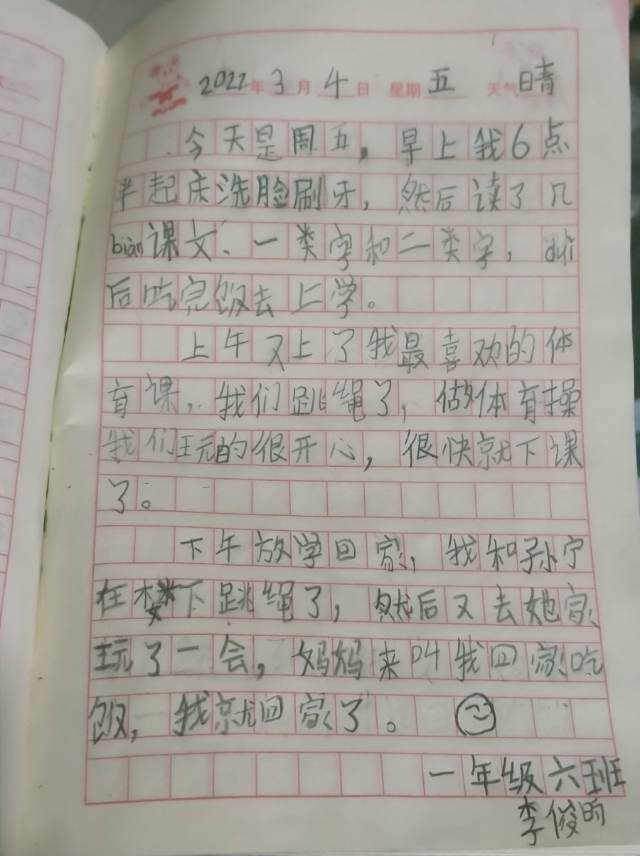 2022年3月4日 星期五 天气晴
今天是周五，早上我6点
半起床洗脸刷牙，然后读了几
biàn课文、一类字和二类字，zuì
后吃完饭去上学。
上午又上了我最喜欢的体
育课，我们跳绳了，做体育操
我们玩的很开心，很快就下课
了。
下午放学回家，我和孙宁
在楼下跳绳了，然后又去她家
玩了一会，妈妈来叫我回家吃
饭，我就回家了。
一年级六班
李俊昕